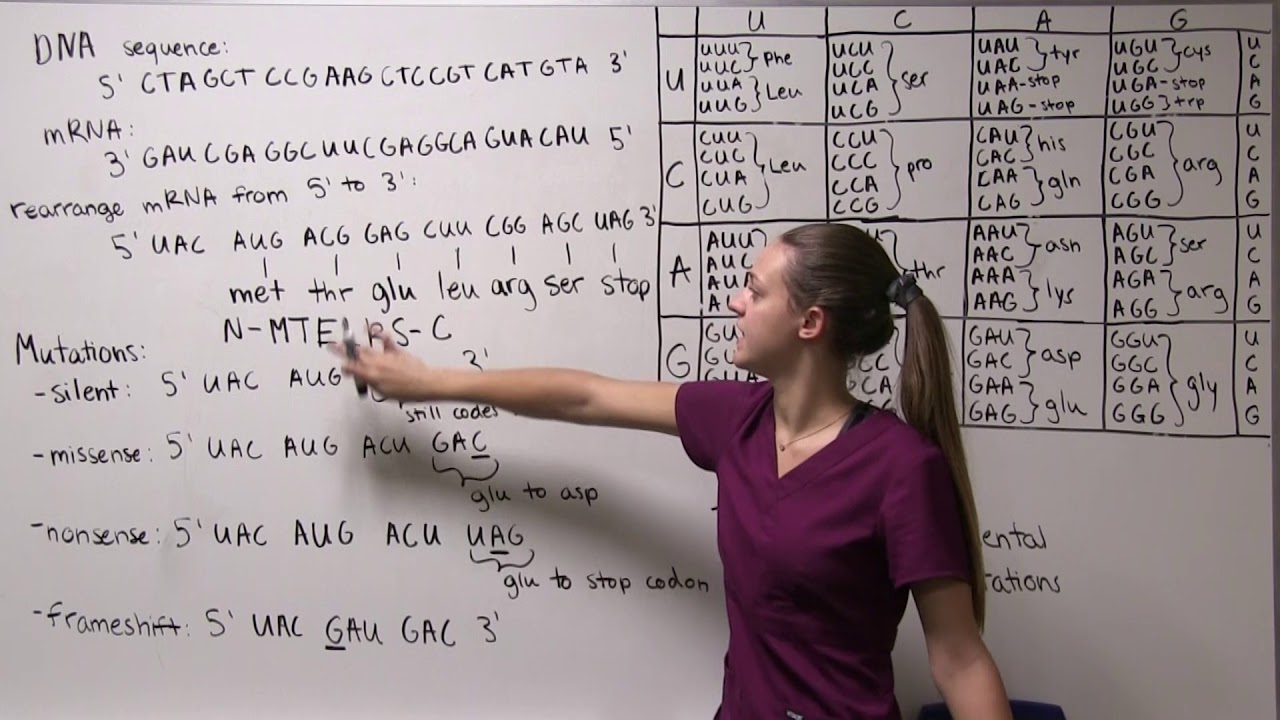 DNA sequence:
5' CTA GCT CCG AAG CTCCGT CAT GTA 3'
mRNA:
3' GAU CGA GGC UUC GAGGCA GUA CAU 5'
rearrange mRNA from 5' to 3':
5' UAC AUG ACG GAG CUU CGG AGC UAG 3'
met thr glu leu arg ser stop
N-MTELRS-C
Mutations:
-silent: 5' UAC AUG 3'
still codes
-missense: 5' UAC AUG ACU GAC
glu to asp
-nonsense: 5' UAC AUG ACU UAG
glu to stop codon
-frameshift: 5' UAC GAU GAC 3'
U C A G
U
UUU UUC Phe
UUA UUG Leu
UCU UCC UCA UCG ser
UAU UAC tyr
UAA-stop
UAG-stop
UGU UGC cys
UGA-stop
UGG trp
U C A G
C
CUU CUC CUA CUG Leu
CCU CCC CCA CCG pro
CAU CAC his
CAA CAG gln
CGU CGC CGA CGG arg
U C A G
A
AUU AUC
thr
AAU AAC asn
AAA AAG lys
AGU AGC ser
AGA AGG arg
U C A G
G
GAU GAC asp
GAA GAG glu
GGC GGA GGG gly
U C A G
ental